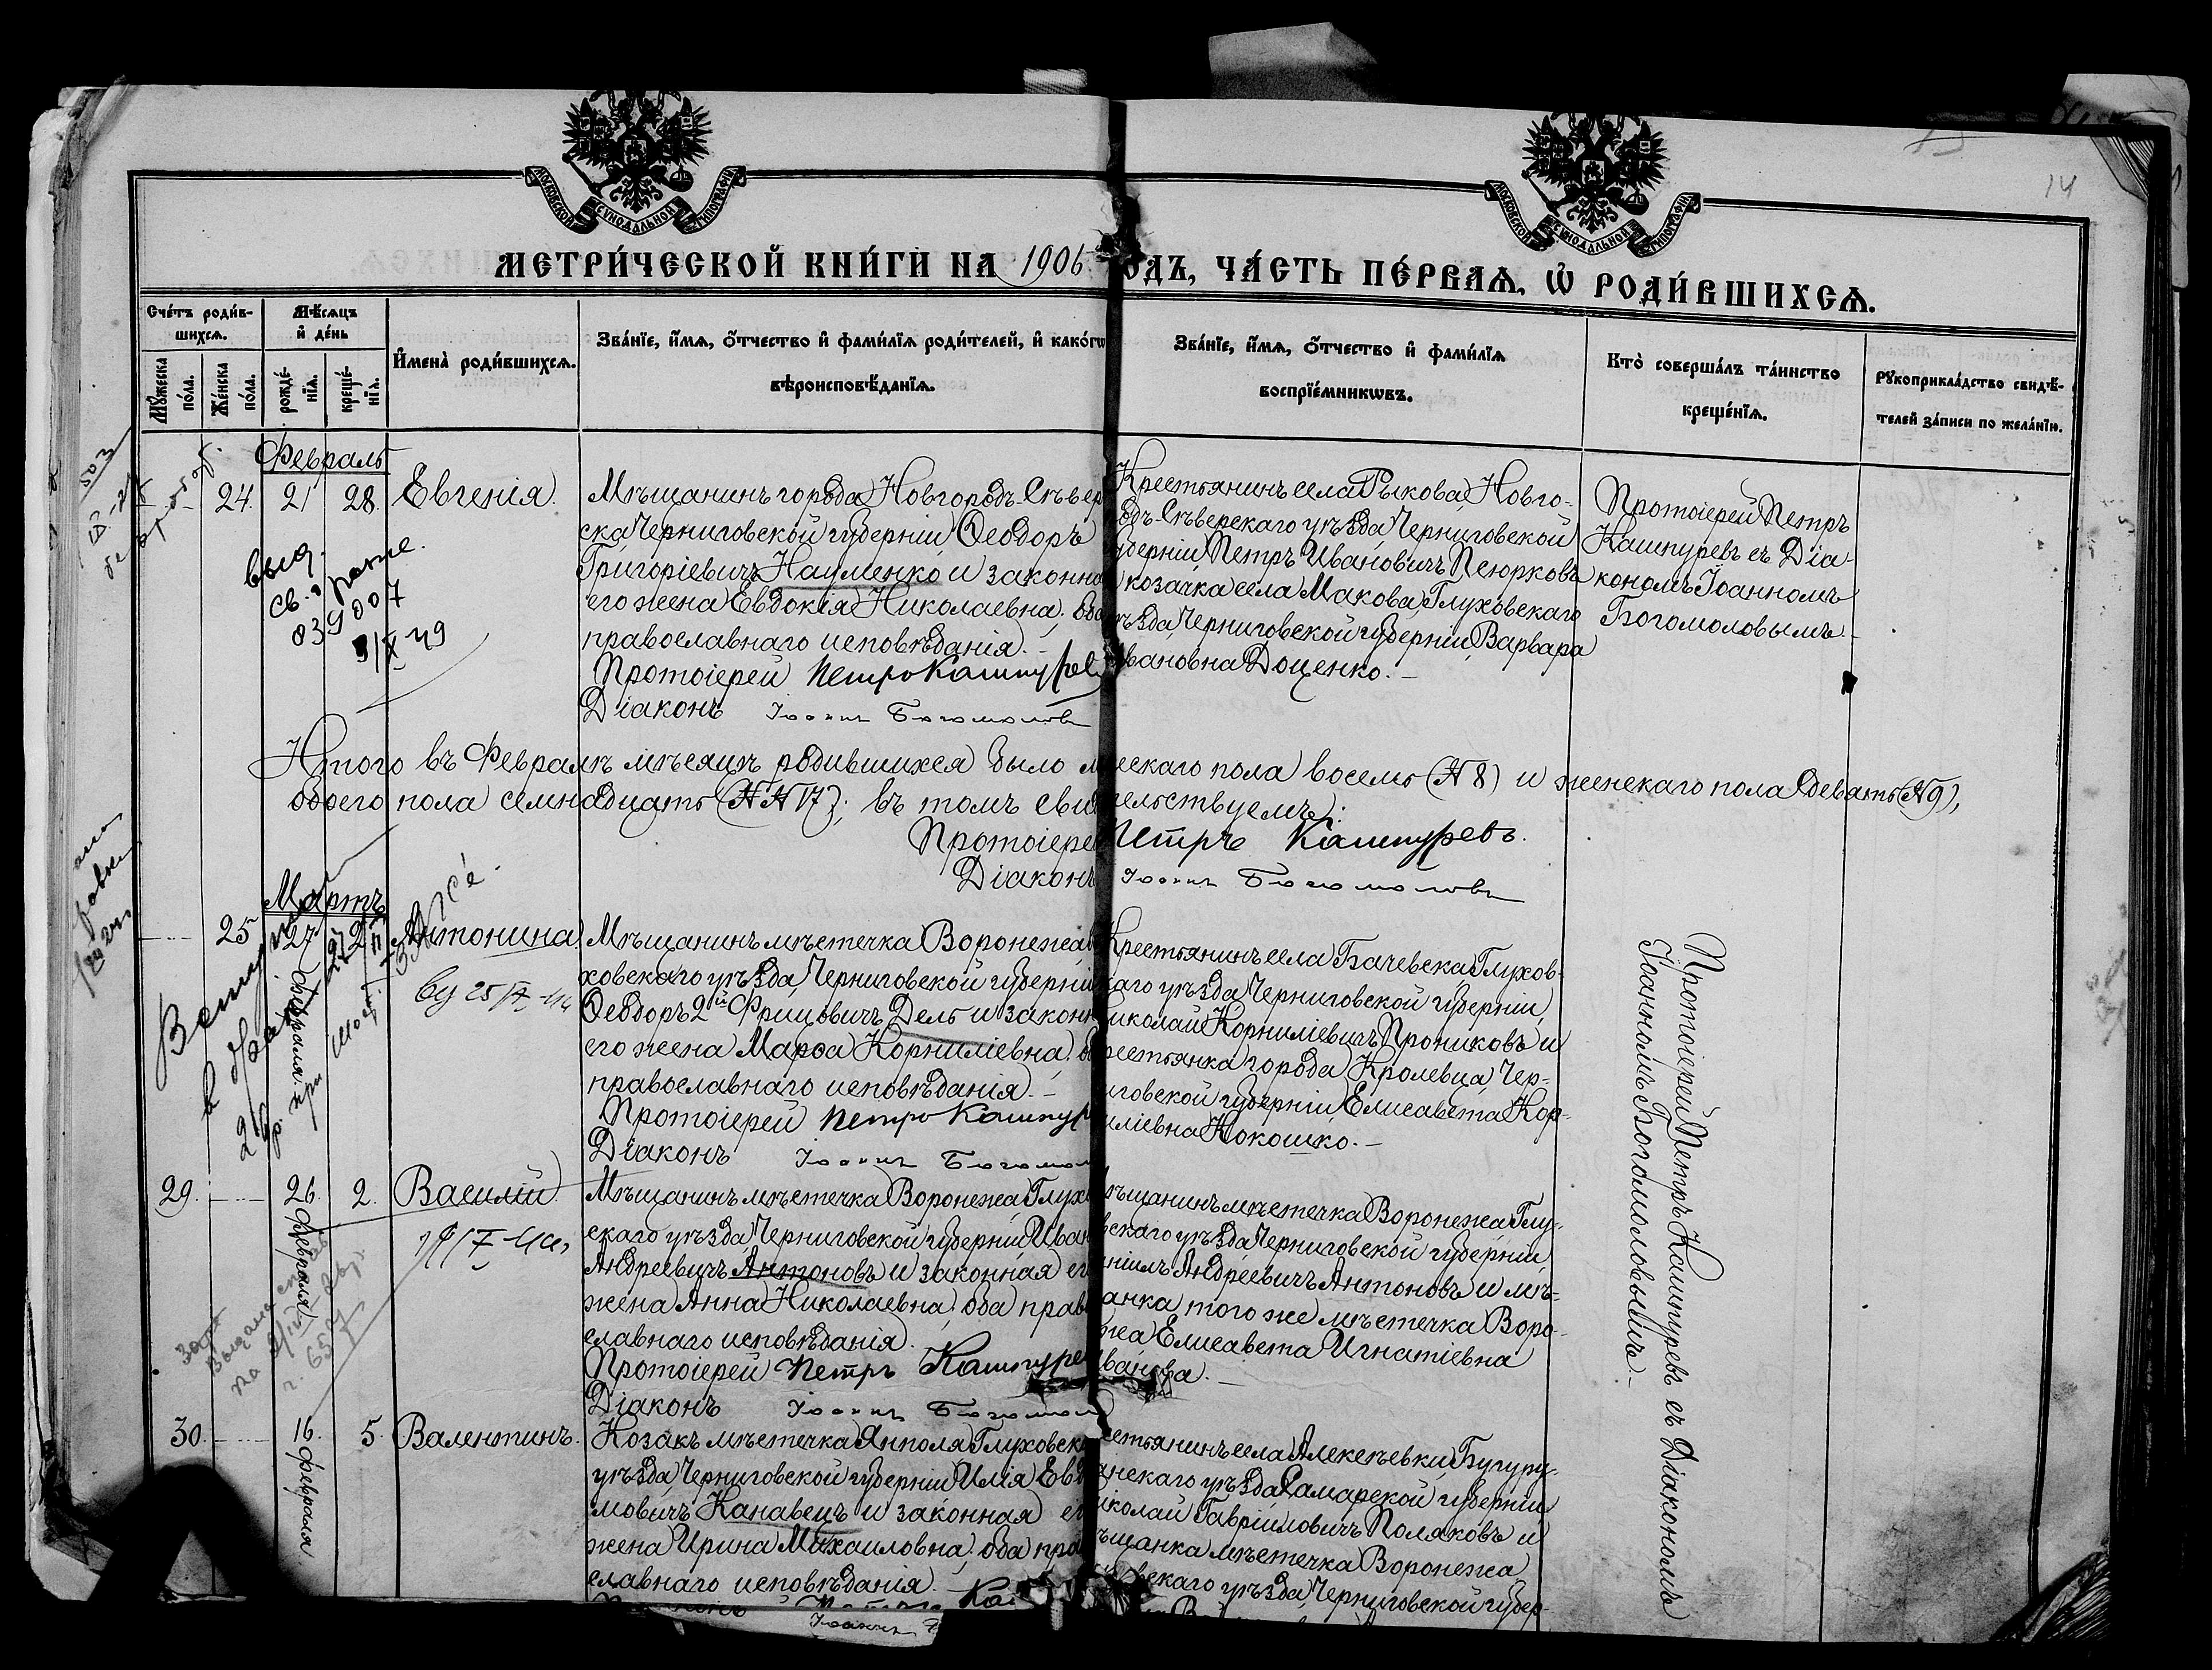 14
МОСКОВСКОЙ СУНОДАЛЬНОЙ ТИПОГРАФІИ
МОСКОВСКОЙ СУНОДАЛЬНОЙ ТИПОГРАФІИ
МЕТРИ́ЧЕСКОЙ КНИ́ГИ НА 1906 ОДЪ, ЧА́СТЬ ПЕ́РВАѦ, Ѡ РОДИ́ВШИХСѦ.
Сче́тъ роди́в-
шихсѧ.
Мѣ́сѧцъ
и҆ де́нь
Мꙋ́жеска
по́ла.
Же́нска
по́ла.
рожде́-
нїѧ.
креще́-
нїѧ.
И҆мена̀ роди́вшихсѧ.
Зва́нїе, и҆́мѧ, ѻ҆́тчество и҆ фами́лїѧ роди́телей, и҆ како́гѡ
вѣроисповѣ́данїѧ.
Зва́нїе, и҆́мѧ, ѻ҆́тчество и҆ фами́лїѧ
воспрїе́мникѡвъ.
Кто̀ соверша́лъ та́инство
креще́нїѧ.
Рꙋкоприкла́дство свидѣ́-
телей за́писи по жела́нїю.
Февраль
24. 21 28. Евгенія.
Мѣщанинъ города Новгородъ-Сѣвер
ска Черниговской губерніи Ѳеодоръ
Григоріевичъ Науменко и законна
его жена Евдокія Николаевна, оба
православнаго исповѣданія.-
Протоіерей Петръ Кашпурев
Діаконъ Іоаннъ Богомоловъ
Крестьянинъ села Рыкова, Новго-
одъ-Сѣверскаго уѣзда Черниговской
уберніи Петръ Ивановичъ Песюрковъ
козачка села Макова, Глуховскаго
ѣзда, Черниговской губерніи, Варвара
Ивановна Доценко.-
Протоіерей Петръ
Кашпуревъ съ Діа-
кономъ Іоанномъ
Богомоловымъ.-
выд.
св. о рожд.
039007
3/X 49
Итого въ Февралѣ мѣсяцѣ родившихся было м ескаго пола восемь (№ 8) и женскаго пола девять (№ 9),
обоего пола семнадцать (№№ 17); въ томъ сви тельствуемъ:
Протоіере Петръ Кашпуревъ.
Діаконъ Іоаннъ Богомоловъ
Мартъ
25 27 Февраля. 2 Антонина
Мѣщанинъ мѣстечка Воронежа,
ховскаго уѣзда, Черниговской губерніи
Ѳеодоръ 2й Фрицовичъ Дель и законн
его жена Марѳа Корниліевна, о
православнаго исповѣданія.-
Протоіерей Петръ Кашпур
Діаконъ Іоаннъ Богомол
Крестьянинъ села Бачевска Глухов-
каго уѣзда, Черниговской губерніи,
иколай Корниліевичъ Прониковъ и
рестьянка города Кролевца, Чер-
иговской губерніи Елисавета Кор-
иліевна Кокошко.-
Протоіерей Петръ Кашпуревъ съ Діакономъ
Іоанномъ Богомоловымъ.-
29. 26 Февраля 2. Василій.
Мѣщанинъ мѣстечка Воронежа, Глухо
скаго уѣзда Черниговской губерніи, Иван
Андреевичъ Антоновъ и законная ег
жена Анна Николаевна, оба прав
славнаго исповѣданія.
Протоіерей Петръ Кашпурев
Діаконъ Іоаннъ Богомол
ѣщанинъ мѣстечка Воронежа, Глу-
вскаго уѣзда Черниговской губерніи,
ніилъ Андреевичъ Антоновъ и мѣ-
анка того же мѣстечка Воро-
жа Елисавета Игнатіевна
ванова.-
30. 16 Февраля 5. Валентинъ.
Козакъ мѣстечка Янполя Глуховск
уѣзда Черниговской губерніи Илія Евѳ
мовичъ Канавецъ и законная ег
жена Ирина Михаиловна, оба пра
славнаго исповѣданія.-
естьянинъ села Алексѣевки, Бугуру-
анскаго уѣзда Самарской губерніи
иколай Гавріиловичъ Поляковъ и
ѣщанка мѣстечка Воронежа
вскаго уѣзда, Черниговской губер-